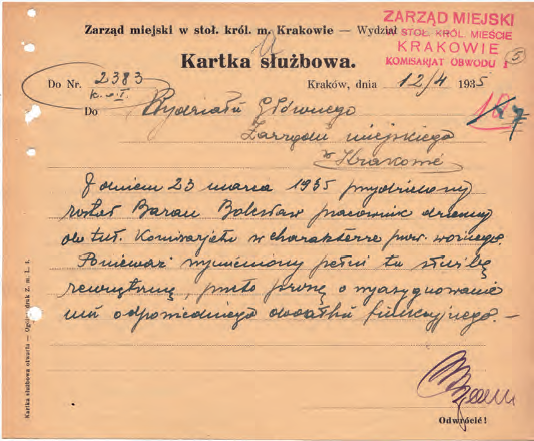 Zarząd miejski w stoł. król. m. Krakowie — Wydział
ZARZĄD MIEJSKI
W STOŁ. KRÓL. MIEŚCIE
KRAKOWIE
KOMISARJAT OBWODU I
5
Kartka służbowa.
Do Nr. 2383
K.o.I.
Kraków, dnia 12/4 1935
Do Wydziału Głównego
Zarządu miejskiego
w Krakowie
Z dniem 23 marca 1935 przydzielony
został Baran Bolesław pracownik dzienny
do tut. Komisarjatu w charakterze prow. woźnego.
Ponieważ wymieniony pełni tu służbę
zewnętrzną, przeto proszę o wyasygnowanie
mu odpowiedniego dodatku funkcyjnego. —
Odwrócić!
Kartka służbowa otwarta — Ogólny druk Z. m. L. 1.